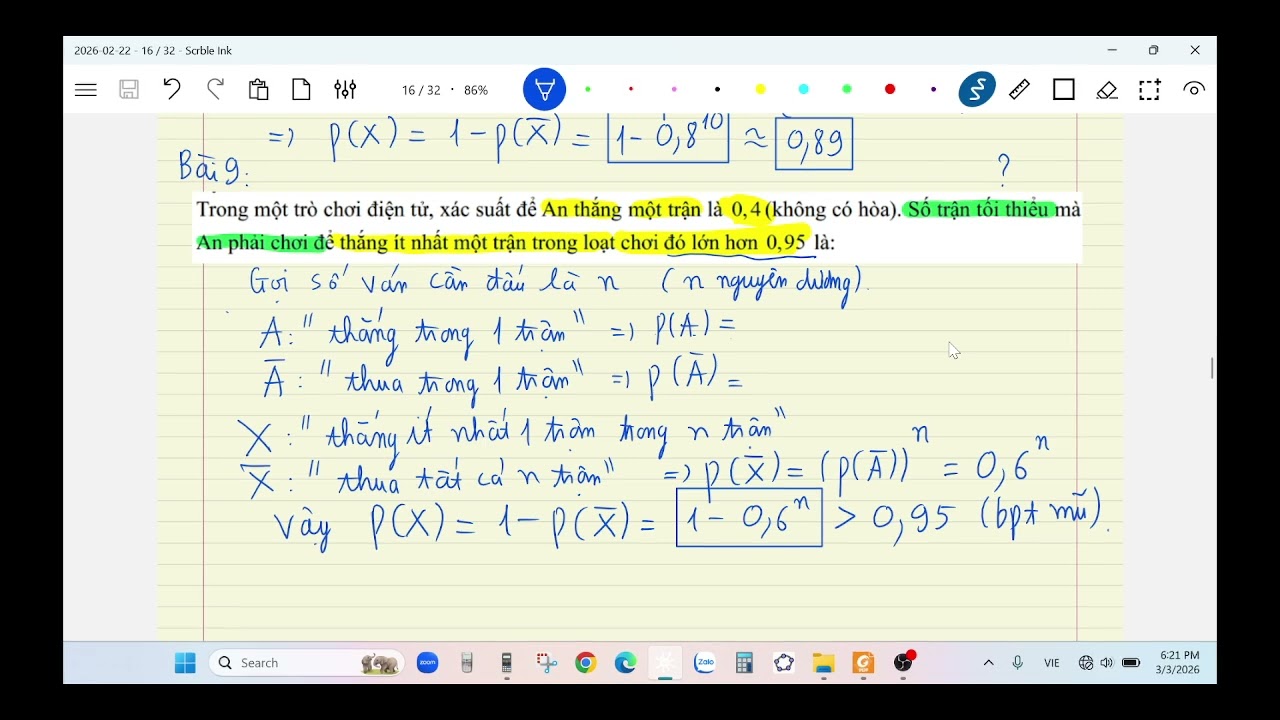 2026-02-22 - 16 / 32 - Scrble Ink
16 / 32 · 86%
=> p(X) = 1 - p(X̅) = 1 - 0,8^10 ≈ 0,89
Bài 9:
?
Trong một trò chơi điện tử, xác suất để An thắng một trận là 0,4 (không có hòa). Số trận tối thiểu mà
An phải chơi để thắng ít nhất một trận trong loạt chơi đó lớn hơn 0,95 là:
Gọi số ván cần đấu là n (n nguyên dương).
A: "thắng trong 1 trận" => p(A) =
A̅: "thua trong 1 trận" => p(A̅) =
X: "thắng ít nhất 1 trận trong n trận"
X̅: "thua tất cả n trận" => p(X̅) = (p(A̅))^n = 0,6^n
Vậy p(X) = 1 - p(X̅) = 1 - 0,6^n > 0,95 (bpt mũ).
Search
zoom
Zalo
VIE
6:21 PM
3/3/2026